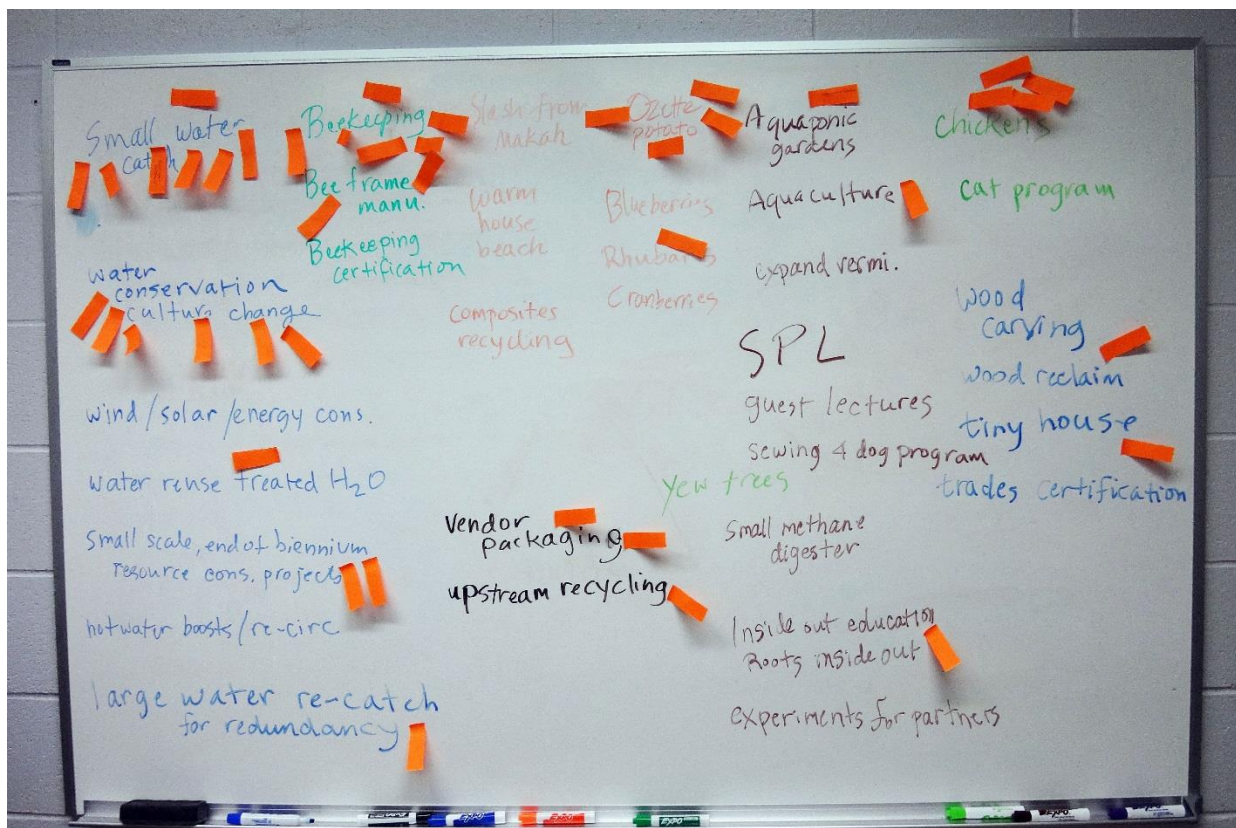 Small water
catch
water
conservation
culture change
wind/solar/energy cons.
water reuse treated H₂O
Small scale, end of biennium
resource cons. projects
hotwater boosts/re-circ
large water re-catch
for redundancy
Beekeeping
Bee frame
manu.
Beekeeping
certification
Slash from
Makah
warm
house
beach
composites
recycling
Vendor
packaging
upstream recycling
Ozette
potato
Blueberries
Rhubarbs
Cranberries
Yew trees
Aquaponic
gardens
Aquaculture
expand vermi.
SPL
guest lectures
sewing 4 dog program
Small methane
digester
Inside out education
Roots inside out
experiments for partners
Chickens
cat program
wood
carving
wood reclaim
tiny house
trades certification
EXPO
EXPO
EXPO
EXPO